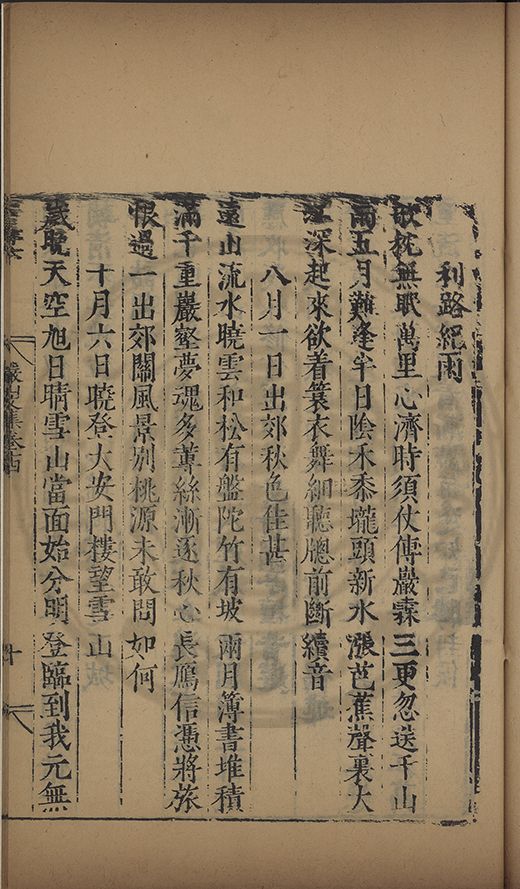 利路紀雨
欹枕無眠萬里心濟時須仗傅巖霖三更忽送千山
雨五月難逢半日陰禾黍壠頭新水漲芭蕉聲裏大
江深起來欲着簑衣舞細聽牕前斷續音
八月一日出郊秋色佳甚
遠山流水曉雲和松有盤陀竹有坡兩月簿書堆積
滿千重巖壑夢魂多蓴絲漸逐秋心長鴈信憑將旅
恨過一出郊關風景別桃源未敢問如何
十月六日曉登大安門樓望雪山
歲晚天空旭日晴雪山當面始分明登臨到我元無